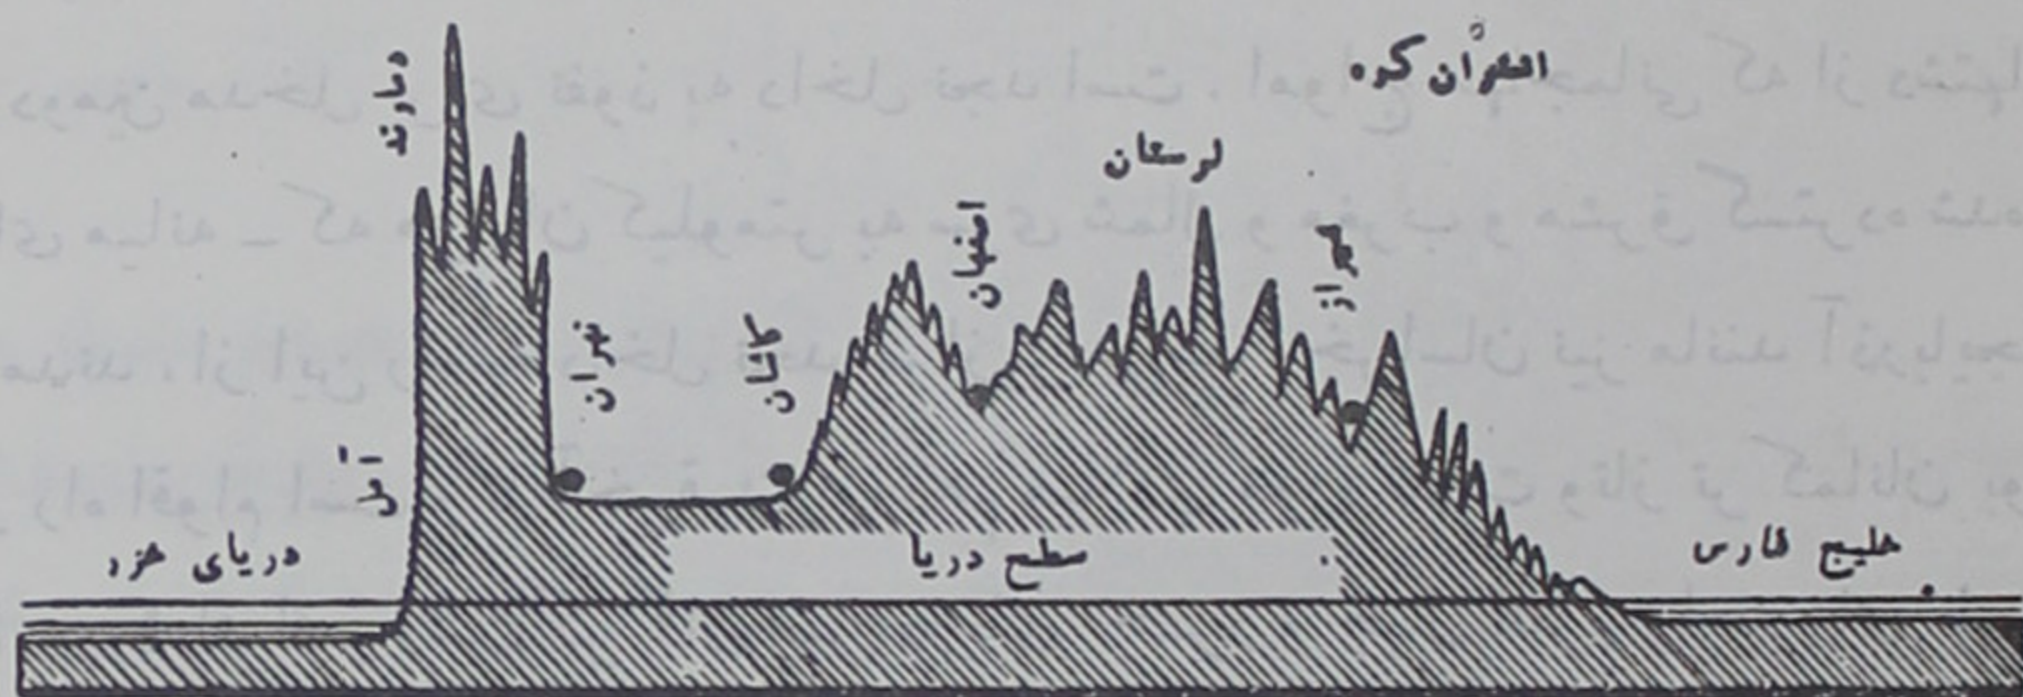 اشتران کوه
دماوند
لرستان
اصفهان
شیراز
تهران
کاشان
آمل
دریای خزر
سطح دریا
خلیج فارس